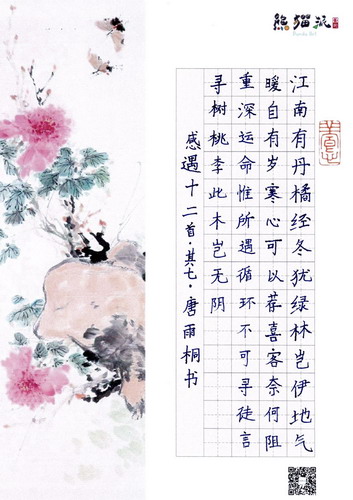 熊猫派
江南有丹橘经冬犹绿林岂伊地气
暖自有岁寒心可以荐喜客奈何阻
重深运命惟所遇循环不可寻徒言
寻树桃李此木岂无阴
感遇十二首·其七·唐雨桐书